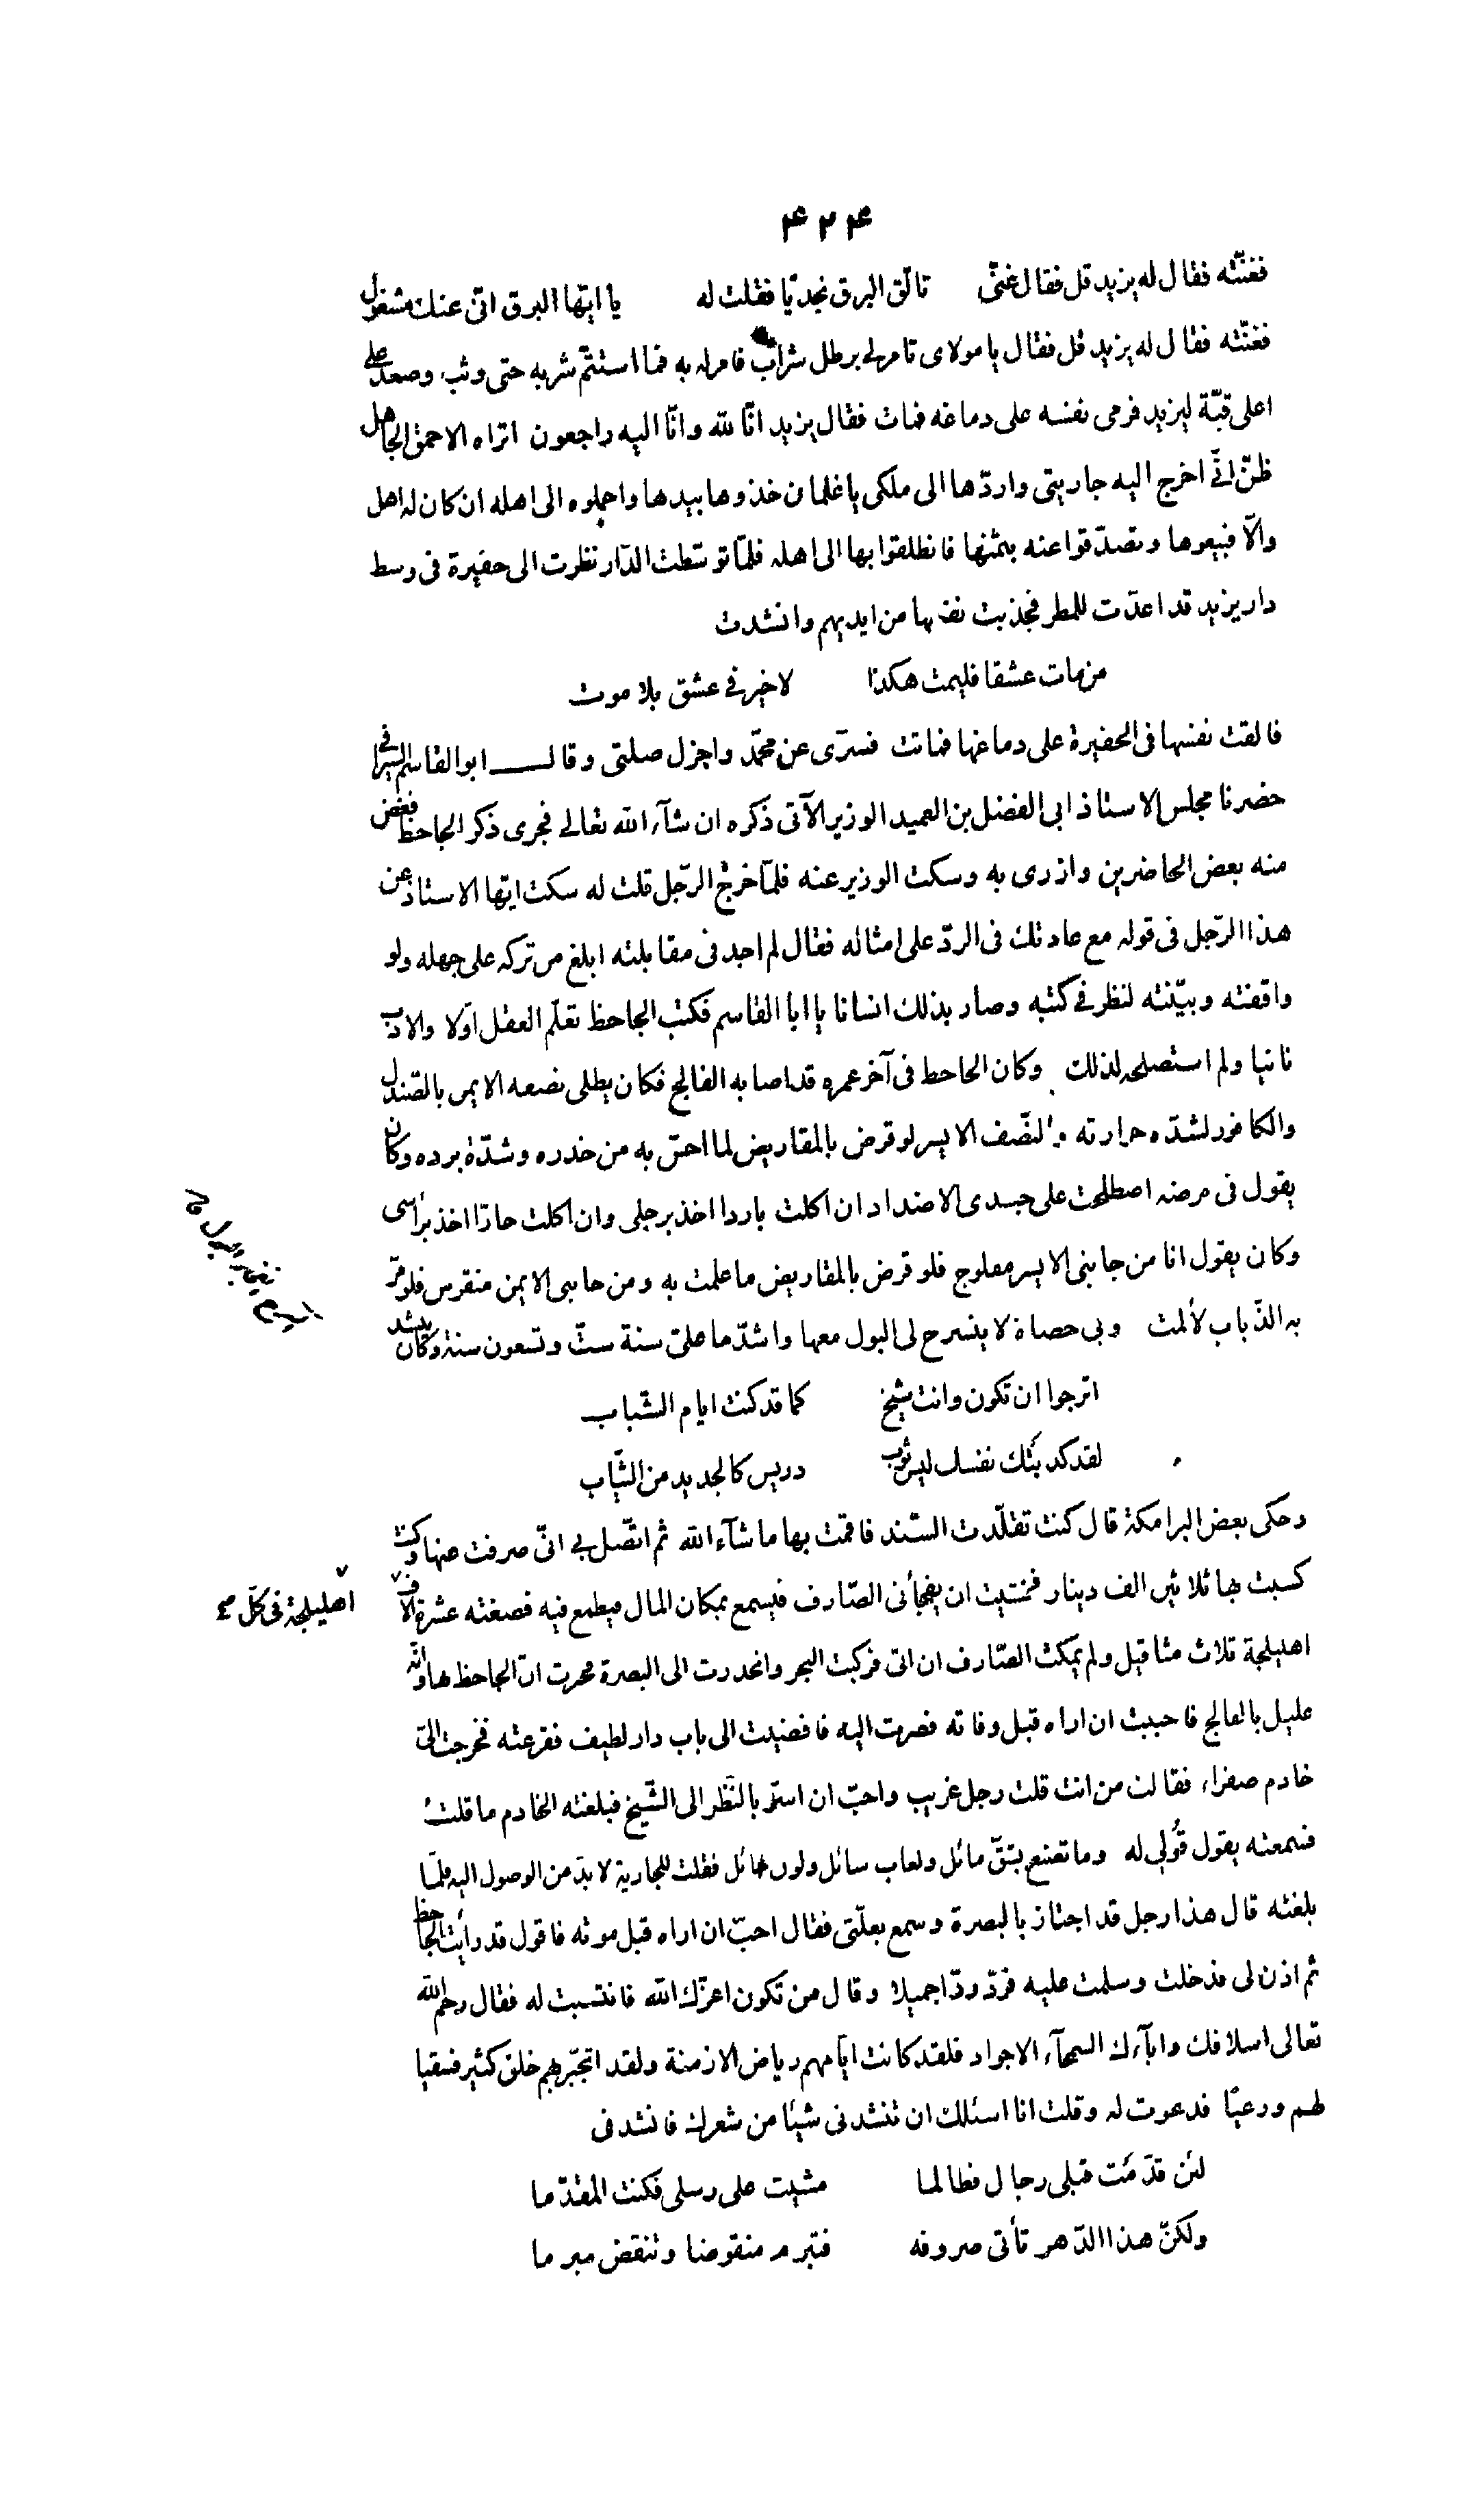 ۴۲۴
فغنّته فقال له يزيد قل فقال غنّى تالّق البرق نجديّا فقلت له يا ايّها البرق انّى عنك مشغول
فغنّته فقال له يزيد قل فقال يا مولاى تامر لى برطل شراب فامر له به فما استتمّ شربه حتى وثب وصعد على
اعلى قبّة ليزيد فرمى نفسه على دماغه فمات فقال يزيد انّا لله وانّا اليه راجعون اتراه الاحمق الجاهل
ظنّ انّى اخرج اليه جاريتى واردّها الى ملكى يا غلمان خذوها بيدها واحملوه الى اهله ان كان له اهل
والّا فبيعوها وتصدّقوا عنه بثمنها فانطلقوا بها الى اهله فلمّا توسّطت الدّار نظرت الى حفيرة فى وسط
دار يزيد قد اعدّت للمطر فجذبت نفسها من ايديهم وانشدت
من مات عشقا فليمت هكذا لا خير فى عشق بلا موت
فالقت نفسها فى الحفيرة على دماغها فماتت فسرّى عن محمّد واجزل صلتى وقال ابو القاسم السيرافى
حضرنا مجلس الاستاذ ابى الفضل بن العميد الوزير الآتى ذكره ان شآء الله تعالى فجرى ذكر الجاحظ فغض
منه بعض الحاضرين وازرى به وسكت الوزير عنه فلمّا خرج الرّجل قلت له سكت ايّها الاستاذ عن
هذا الرّجل فى قوله مع عادتك فى الردّ على امثاله فقال لم اجد فى مقابلته ابلغ من تركه على جهله ولو
واقفته وبيّنته لنظر فى كتبه وصار بذلك انسانا يا ابا القاسم فكتب الجاحظ تعلّم العقل اوّلا والادب
ثانيا ولم استصلحه لذلك وكان الجاحظ فى آخر عمره قد اصابه الفالج فكان يطلى نصفه الايمن بالصّندل
والكافور لشدّة حرارته والنّصف الايسر لو قرض بالمقاريض لما احسّ به من خدره وشدّة برده وكان
يقول فى مرضه اصطلحت على جسدى الاضداد ان اكلت باردا اخذ برجلى وان اكلت حارّا اخذ براسى
وكان يقول انا من جانبى الايسر مفلوج فلو قرض بالمقاريض ما علمت به ومن جانبى الايمن منقرس فلو مرّ
به الذّباب لألمت وبى حصاة لا ينسرح لى البول معها واشدّ ما علىّ سنة ستّ وتسعون سنة وكان ينشد
اترجوا ان تكون وانت شيخ كما قد كنت ايام الشّباب
لقد كذبتك نفسك ليس ثوب دريس كالجديد من الثّياب
وحكى بعض البرامكة قال كنت تقلّدت السّند فاقمت بها ما شآء الله ثم اتّصل بى انّى صرفت عنها وكنت
كسبت بها ثلاثين الف دينار فخشيت ان يفجأنى الصّارف فيسمع بمكان المال فيطمع فيه فصغته عشرة آلاف
اهليلجة فى كلّ
اهليلجة ثلاث مثاقيل ولم يمكث الصّارف ان اتى فركبت البحر وانحدرت الى البصرة فخبرت انّ الجاحظ بها وانّه
عليل بالفالج فاحببت ان اراه قبل وفاته فصرت اليه فافضيت الى باب دار لطيف فقرعته فخرجت الىّ
خادم صفراء فقالت من انت قلت رجل غريب واحبّ ان اسرّ بالنّظر الى الشّيخ فبلغته الخادم ما قلت
فسمعته يقول قولى له وما تصنع بشقّ مائل ولعاب سائل ولون حائل فقلت للجارية لا بدّ من الوصول اليه فلمّا
بلغته قال هذا رجل قد اجتاز بالبصرة وسمع بعلّتى فقال احبّ ان اراه قبل موته فاقول قد رأيت الجاحظ
ثم اذن لى فدخلت وسلمت عليه فردّ ردّا جميلا وقال من تكون اعزّك الله فانتسبت له فقال رحم الله
تعالى اسلافك وابآءك السمحآء الاجواد فلقد كانت ايّامهم رياض الازمنة ولقد انجبر بهم خلق كثير فسقيا
لهم ورعيًا فدعوت له وقلت انا اسئلك ان تنشدنى شيئا من شعرك فانشدنى
لئن قدّمت قبلى رجال فطالما مشيت على رسلى فكنت المقدّما
ولكنّ هذا الدّهر تأتى صروفه فتبرم منقوضا وتنقض مبرما